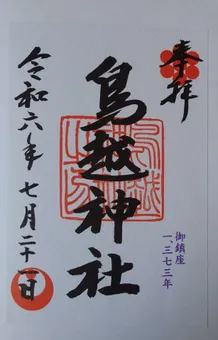 奉拝
鳥越神社
令和六年七月二十一日
御鎮座
一、三七三年